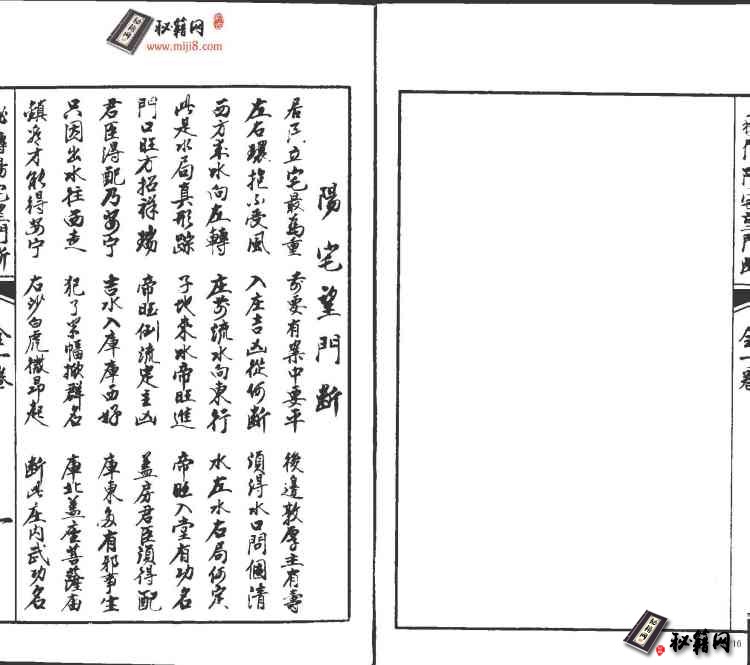 秘籍网
www.miji8.com
陽宅望門断
居 立宅最為重 前要有案中要平 後邊敦厚主有壽
左右環抱不受風 入庄吉凶從何断 須得水口問個清
西方來水向左轉 庄前流水向東行 水左水右局何定
此是水局真形踪 子地来水帝旺進 帝旺入堂有功名
門口旺方招祥瑞 帝旺倒流定主凶 盖房君臣須得配
君臣得配乃安宁 吉水入庫庫西好 庫東多有邪事生
只因出水往西走 犯了 群名 庫北盖座菩薩庙
鎮 才能得安宁 右沙白虎微昂起 断此庄内武功名
秘傳陽宅望門断 全一卷 一
秘籍网